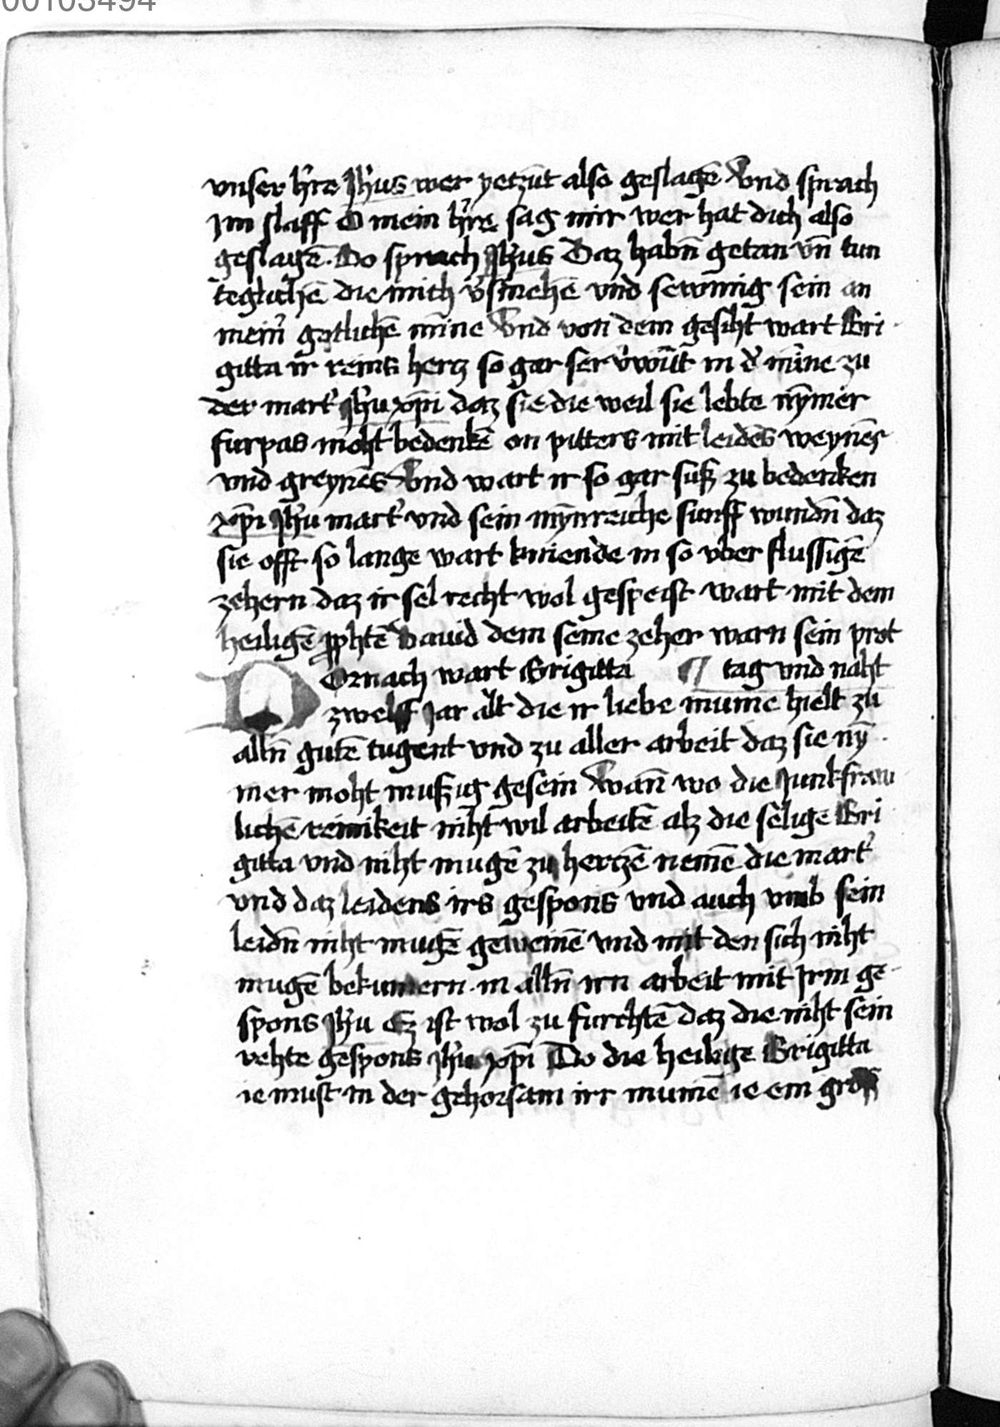 00103494
vnser h're Jh'us wer yetzūt also geslagē Vnd sprach
Jm slaff O mein h're sag mir wer hat dich also
geslagē. Do sprach Jh'us Daz habn̄ getan vn̄ tun
teglichē die mich v'smehē vnd sewmig sein an
mein' gotlichē mīne Vnd von dem gesiht wart Bri
gitta ir reins hertz so gar ser v'wūt in d' mīne zu
der mart' Jh'u xp̄i daz sie die weil sie lebte nȳmer
furpas moht bedenkē on pitters mit leidēs weynēs
vnd greynēs Vnd wart ir so gar suß zu bedenken
xp̄i Jh'u mart' vnd sein mȳnreiche funff wundn̄ daz
sie offt so lange wart kniende in so vber flussigē
zehern daz ir sel recht wol gespeist wart mit dem
heiligē ꝓphtē Dauid dem seine zeher warn sein prot
DOrnach wart Brigitta ¶ tag vnd naht
zwelff Jar alt die ir liebe mume hielt zu
alln̄ gutē tugent vnd zu aller arbeit daz sie nȳ
mer moht mußig gesein Wan̄ wo die Junkfraw
lichē reinikeit niht wil arbeitē alz die selige Bri
gitta vnd niht mugē zu hertzē nemē die mart'
vnd daz leidens irs gespons vnd auch vmb sein
leidn̄ niht mugē geweinē vnd mit den sich niht
mugē bekumern in alln̄ irn arbeit mit Jrm ge
spons Jh'u Ez ist wol zu furchtē daz die niht sein
rehte gespons Jh'u xp̄i Do die heilige Brigitta
ie must in der gehorsam irr mumē ie ein groß